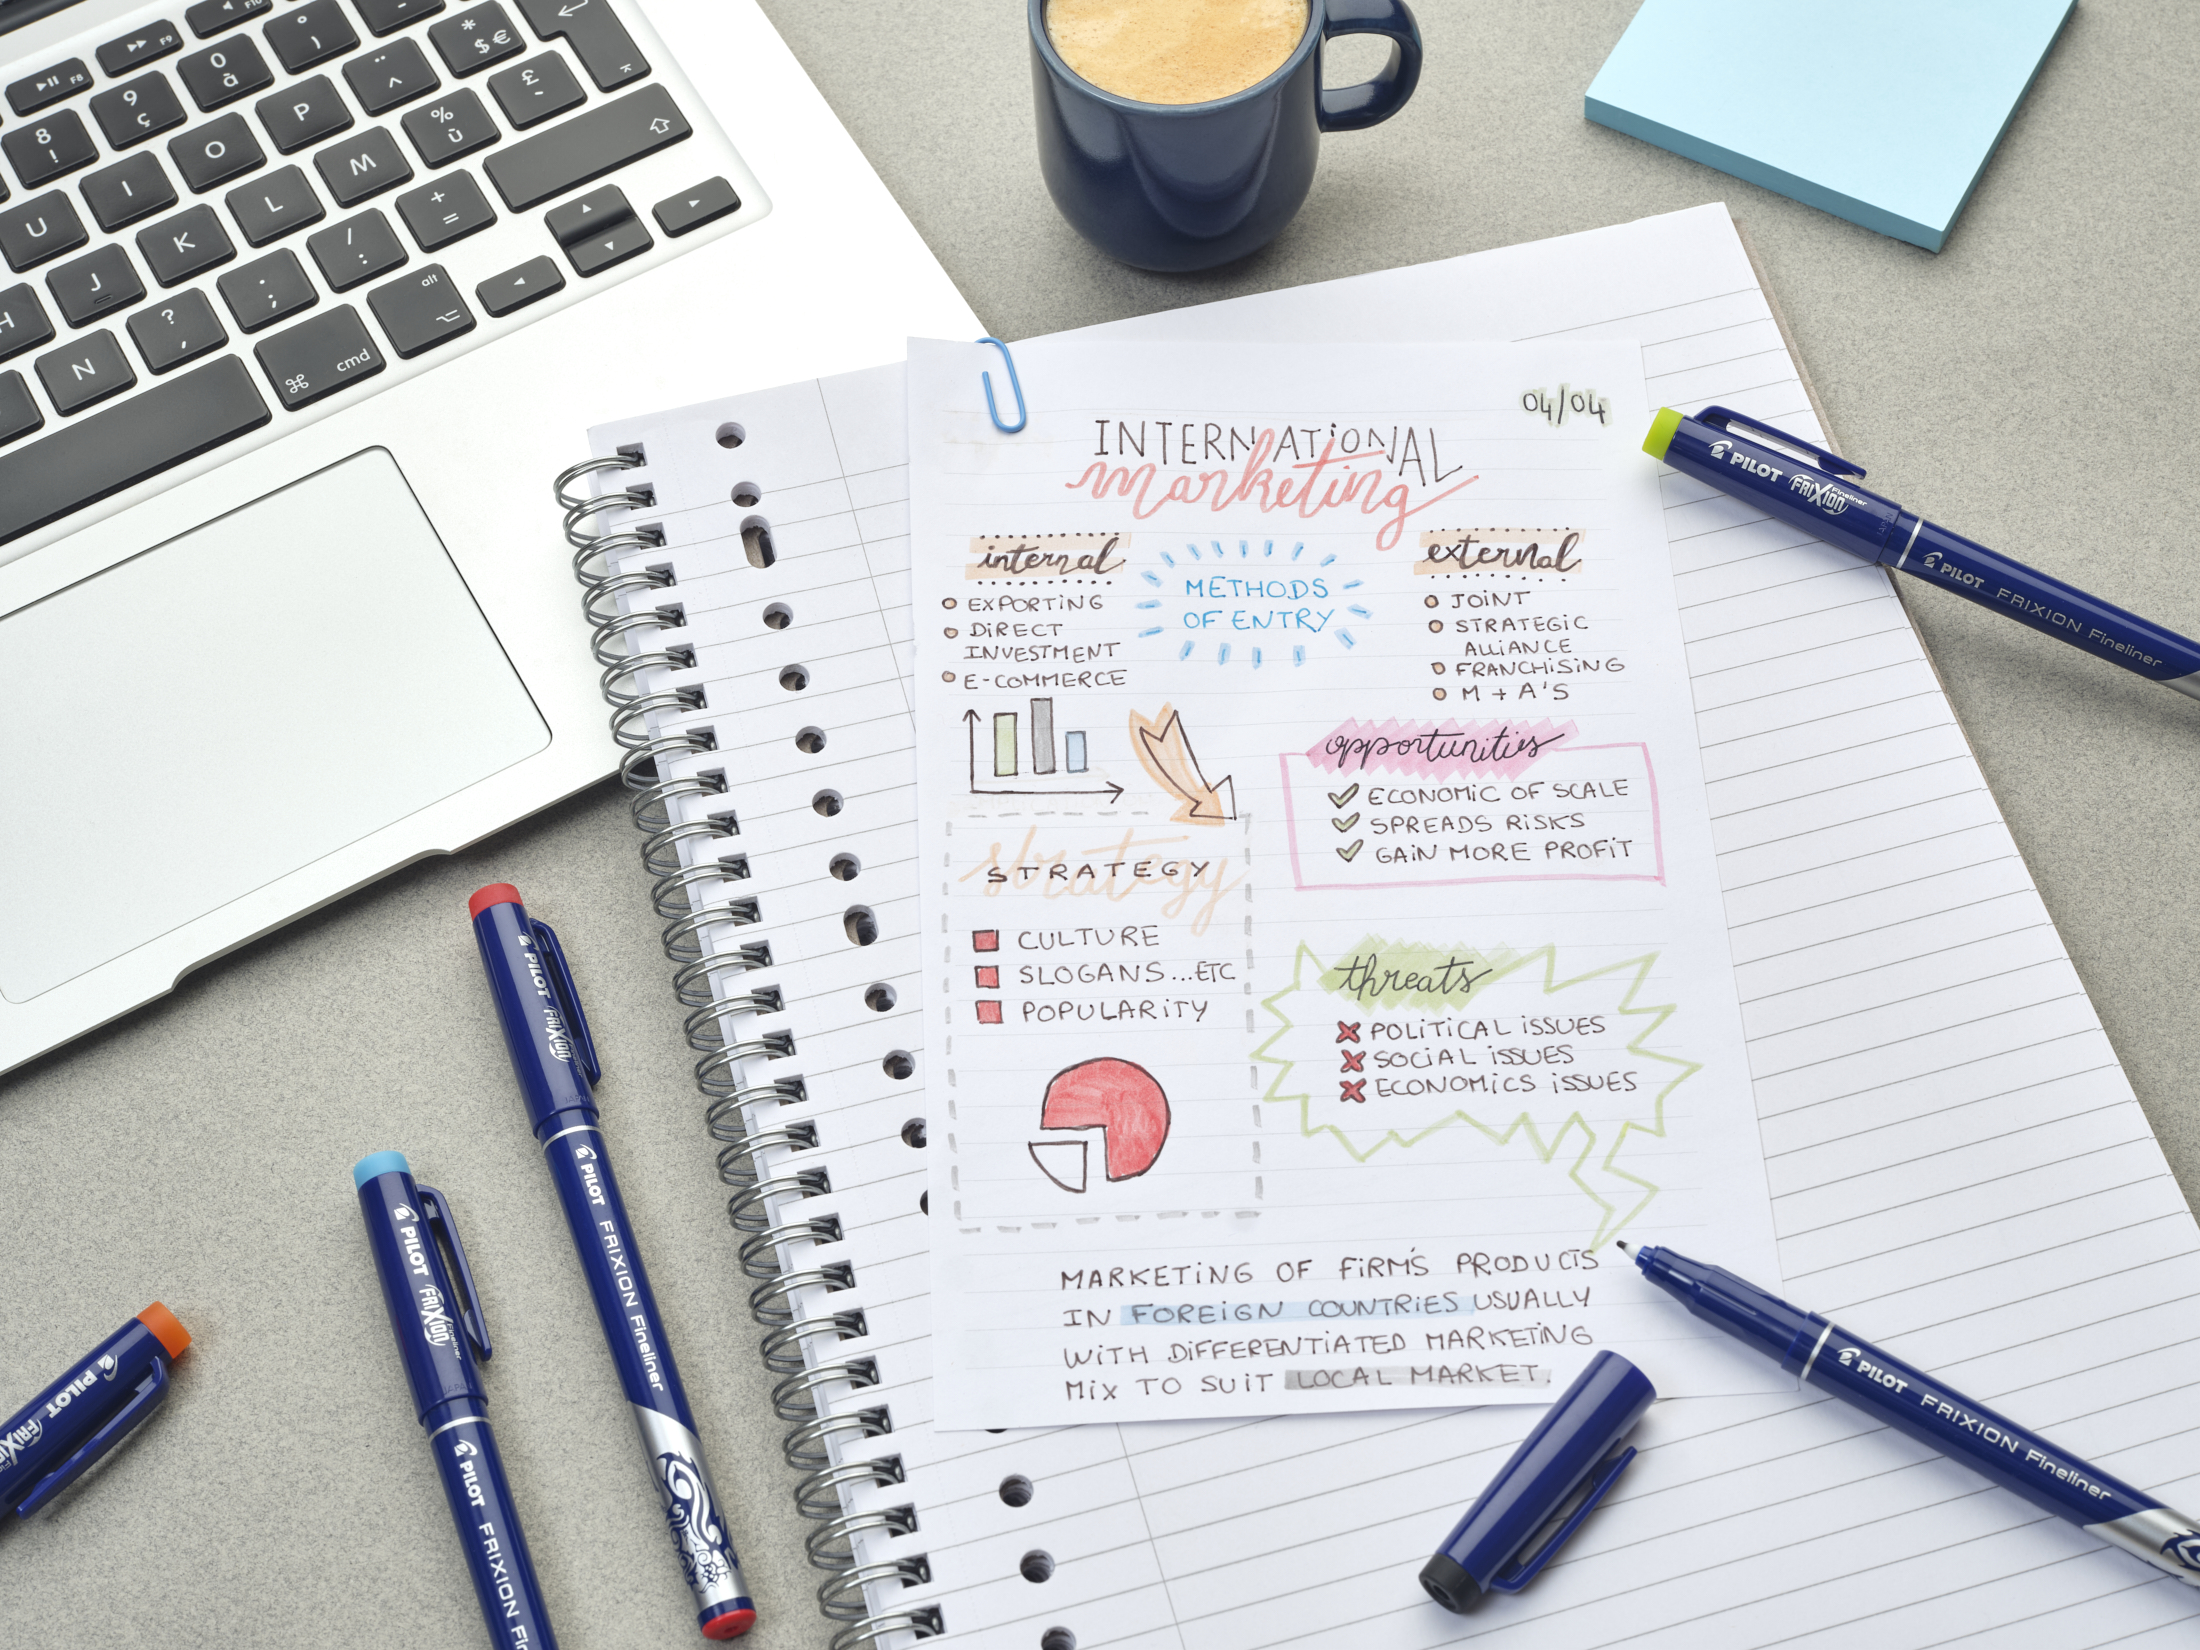 04/04
INTERNATIONAL
marketing
internal
EXPORTING
DIRECT
INVESTMENT
E-COMMERCE
METHODS
OF ENTRY
external
JOINT
STRATEGIC
ALLIANCE
FRANCHISING
M + A'S
opportunities
ECONOMIC OF SCALE
SPREADS RISKS
GAIN MORE PROFIT
strategy
STRATEGY
CULTURE
SLOGANS...ETC
POPULARITY
threats
POLITICAL ISSUES
SOCIAL ISSUES
ECONOMICS ISSUES
MARKETING OF FIRM'S PRODUCTS
IN FOREIGN COUNTRIES USUALLY
WITH DIFFERENTIATED MARKETING
MIX TO SUIT LOCAL MARKET.
PILOT FRIXION Fineliner
PILOT FRIXION Fineliner
PILOT FRIXION Fineliner
PILOT FRIXION Fineliner
PILOT FRIXION Fineliner
PILOT FRIXION
PILOT FRIXION Fineliner
PILOT FRIXION
F8
F9
F10
8 !
9 ç
0 à
° )
¨ ^
* $ €
U
I
O
P
£ `
J
K
L
M
% ù
H
N
? ,
. ;
/ :
+ =
cmd
alt